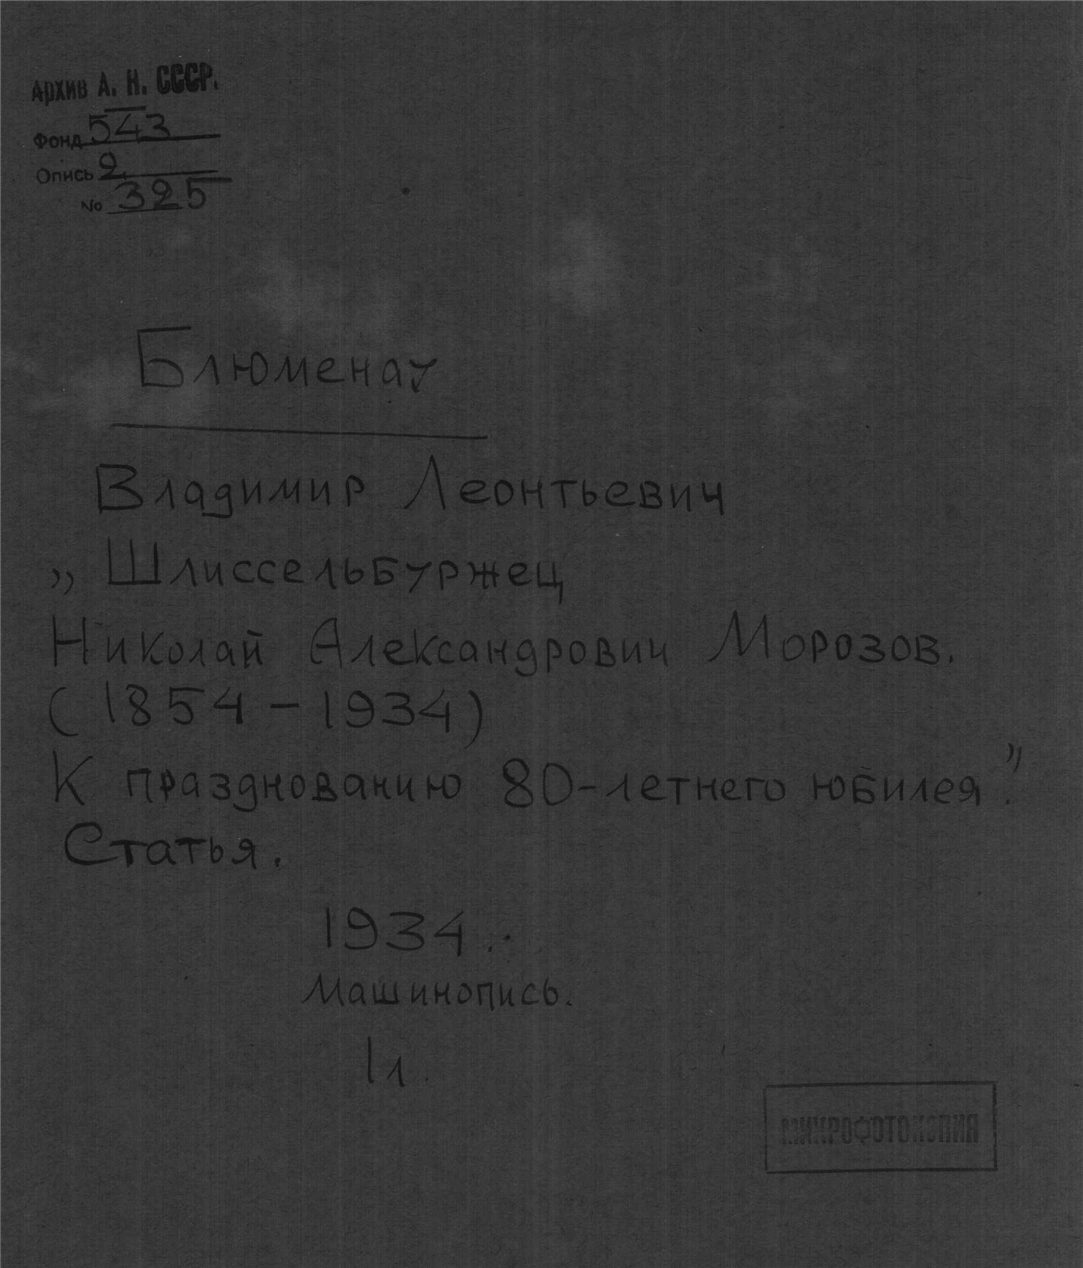 Архив А. Н. СССР.
Фонд 543
Опись 2
№ 325
Блюменау
Владимир Леонтьевич
„Шлиссельбуржец
Николай Александрович Морозов.
(1854 – 1934)
К празднованию 80-летнего юбилея".
Статья.
1934.
Машинопись.
1 л.
МИКРОФОТОКОПИЯ